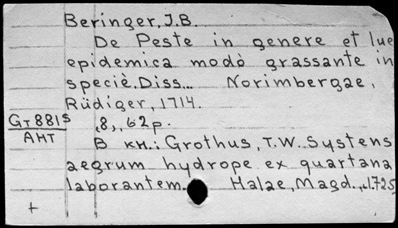 Beringer, J.B.
De Peste in genere et lue
epidemica modò grassante in
speciè. Diss... Norimbergae,
Rüdiger, 1714.
GT881s ,8,, 62p.
AHT В кн.: Grothus, T.W. Systens
aegrum hydrope ex quartana
laborantem. Halae, Magd., 1725
+